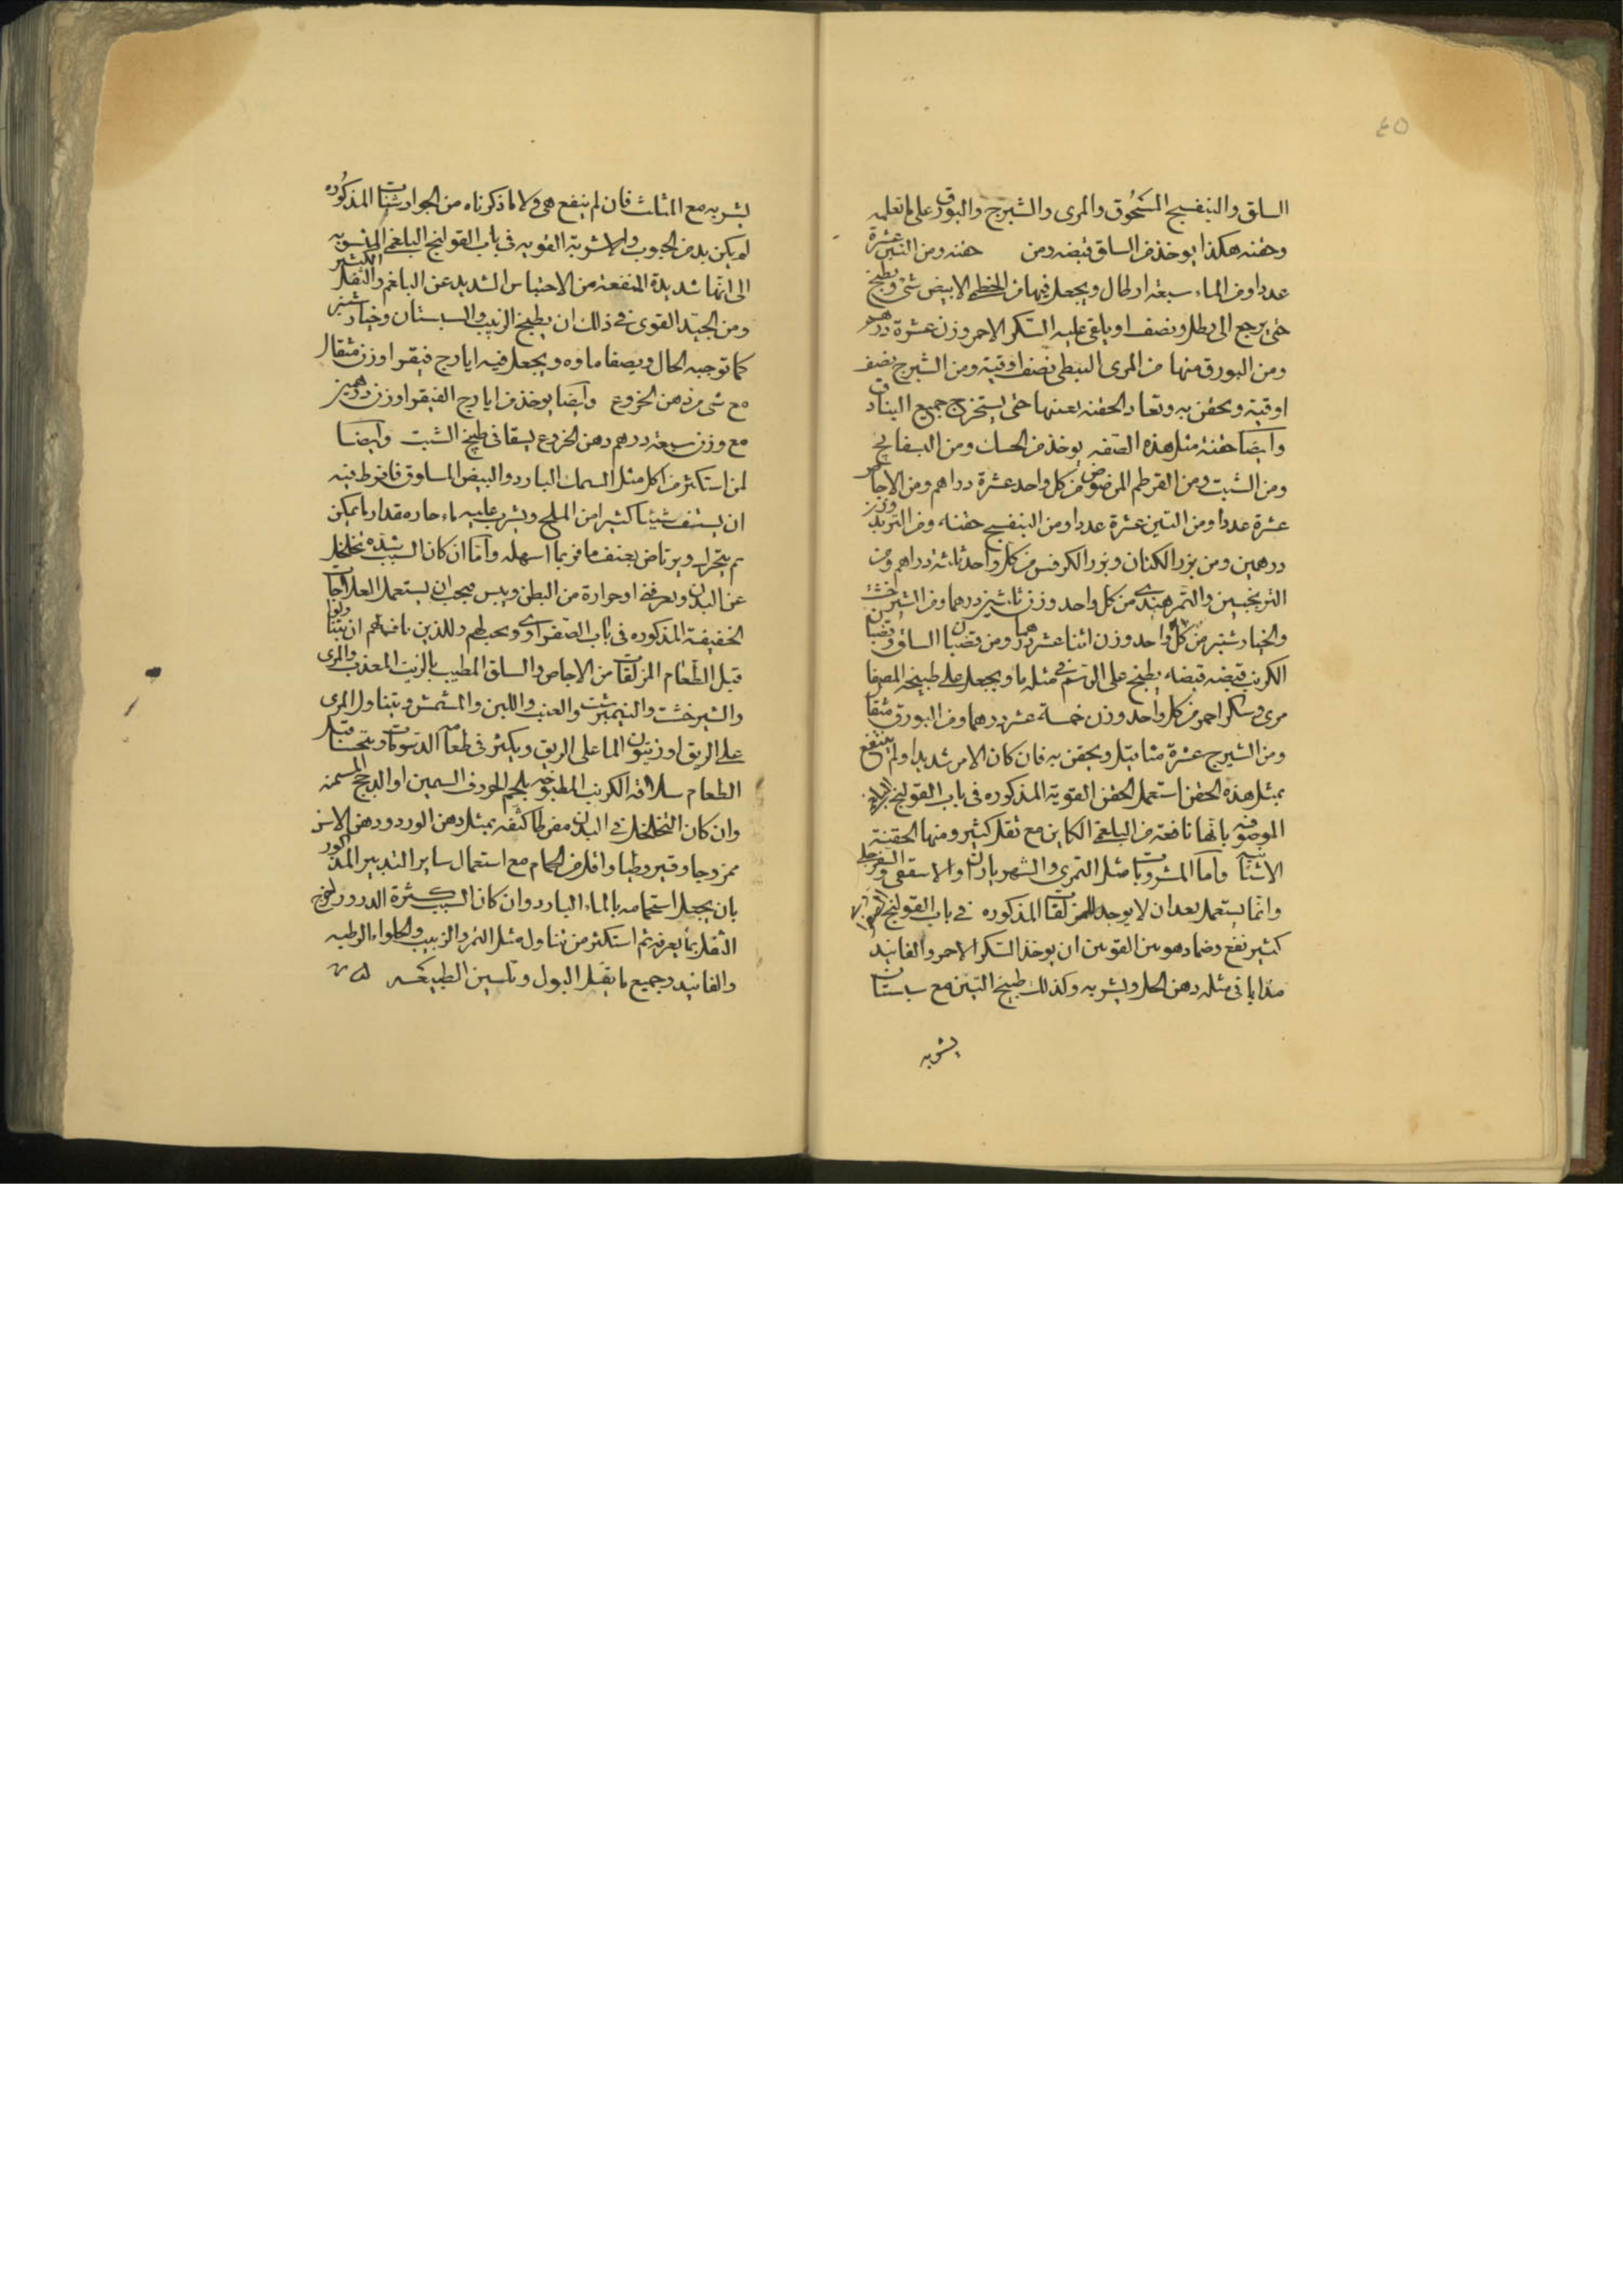 ٤٥
السلق والبنفسج المسحوق والمرى والشيرج والبورق على ما تعلمه
وحقنه هكذا يوخذ من السلق قبضه ومن حفنه ومن التين عشرة
عددا ومن الماء سبعة ارطال ويجعل فيها من الخطمى الابيض شئ ويطبخ
حتى يرجع الى رطل ونصف او يلقى عليه السكر الاحمر وزن عشرة دراهم
ومن البورق منها من المرى النبطى نصف اوقية ومن الشيرج نصف
اوقية ويحقن به وتعاد الحقنه بعينها حتى يستخرج جميع البنادق
وايضا حقنة مثل هذه الصفه يوخذ من الحسك ومن البسفايج
ومن الشبت ومن القرطم المرضوض من كل واحد عشرة دراهم ومن الاجاص
عشرة عددا ومن التين عشرة عددا ومن البنفسج حفنه ومن التربد وزن
درهمين ومن بزر الكتان وبزر الكرفس من كل واحد ثلثة دراهم ومن
الترنجبين والتمر هندى من كل واحد وزن ثلثين درهما ومن الشيرخشت
والخيار شنبر من كل واحد وزن اثنا عشر درهما ومن قضبان السلق وقضبان
الكرنب قبضه قبضه يطبخ على الرسم فى مثله ما ويجعل على طبيخه المصفا
مرى وسكر احمر من كل واحد وزن خمسة عشر درهما ومن البورق مثقال
ومن الشيرج عشرة مثاقيل ويحقن به فان كان الامر شديدا ولم ينتفع
بمثل هذه الحقن استعمل الحقن القوية المذكوره فى باب القولنج
الموصوفه بانها نافعة من البلغمى الكاين مع ثفل كثير ومنها الحقنة
الاشنانيه واما المشروبات مثل التمرى والشهرياران والاسقفى والسفرجلى
وانما يستعمل بعد ان لا يوجد للمزلقات المذكوره فى باب القولنج
كثير نفع وضماد هو بين القوين ان يوخذ السكر الاحمر والفانيد
مذابا فى مثله دهن الحل ويشربه وكذلك طبيخ التين مع سبستان
يشربه
يشربه مع المثلث فان لم ينفع هى ولا ما ذكرناه من الجوارشنات المذكوره
لم يكن بد من الحبوب والاشربة القويه فى باب القولنج البلغمى المنسوبه
الى انها شديدة المنفعة من الاحتباس الشديد عن البلغم والثفل الكثير
ومن الجيد القوى فى ذلك ان يطبخ الزبيب والسبستان وخيار شنبر
كما توجبه الحال ويصفا ماوه ويجعل فيه ايارج فيقرا وزن مثقال
مع شى من دهن الخروع وايضا يوخذ من ايارج الفيقرا وزن درهمين
مع وزن سبعة درهم دهن الخروع يسقا فى طبيخ الشبت وايضا
لمن استكثر من اكل مثل السمك البارد والبيض المسلوق فافرط فيه
ان يستف شيئا كثيرا من الملح ويشرب عليه ماء حاره مقدار ما يمكن
ثم يتحرك ويرتاض بعنف ما فربما اسهله واما ان كان السبب شده تخلخل
عن البدن وتعرفنى او حرارة من البطن ويبس فيجب ان يستعمل العلاجات
الخفيفة المذكوره فى باب الصفراوى ويحبطهم وللذين يافيهم ان يتناولوا
قبل الطعام المزلقات من الاجاص والسلق المطيب بالزيت العذب والمرى
والشيرخشت والنيمبرشت والعنب واللبن والمشمش ويتناول المرى
على الريق او زيتون الما على الريق ويكثر فى طعامه الدسومات ويتحسا قبل
الطعام سلاقة الكرنب المطبوخه بلحم الخروف السمين او الدجج المسمنه
وان كان التخلخل فى البدن مفرطا كثفه بمثل دهن الورد ودهن الاس
ممزوجا وقيروطيا واقلل من الحمام مع استعمال ساير التدبير المذكور
بان يجعل استحمامه بالماء البارد وان كان السبب كثرة الدرور لخروج
الثفل بما يعرفه ثم استكثر من تناول مثل التمر والزبيب والحلواء الرطبه
والفانيد وجميع ما يقلل البول وتلسين الطبيعه